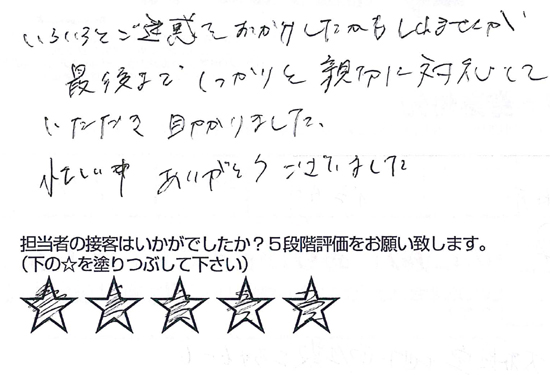 いろいろとご迷惑をおかけしたかもしれませんが
最後まで しっかりと 親切に 対応して
いただき 助かりました、
忙しい中 ありがとうございました
担当者の接客はいかがでしたか？５段階評価をお願い致します。
（下の☆を塗りつぶして下さい）